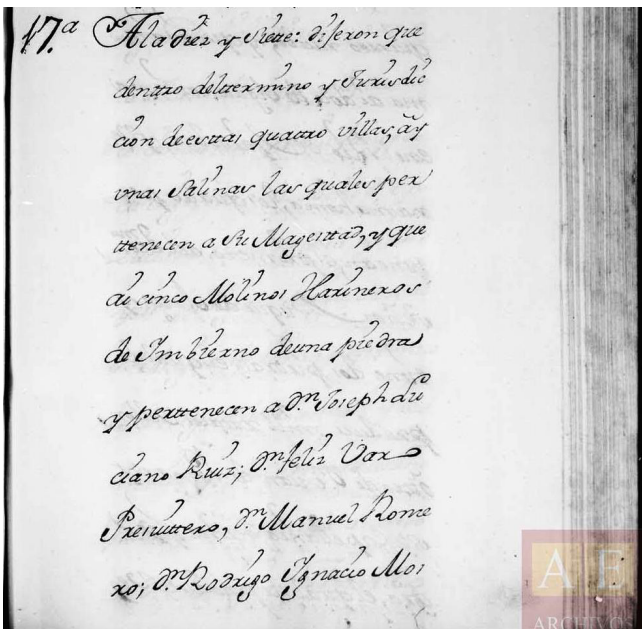 17.ª A la diez y Siete: dijeron que
dentro del termino y Jurisdic
cion de estas quatro villas, ay
unas Salinas las quales per
ttenecen a Su Magestad, y que
ai cinco Molinos Harineros
de Imbierno de una piedra
y perttenecen a Dn Joseph Lu
ciano Ruiz; Dn Feliz Var
Presvittero, Dn Manuel Rome
ro; Dn Rodrigo Ignacio Mos
A E
ARCHIVOS